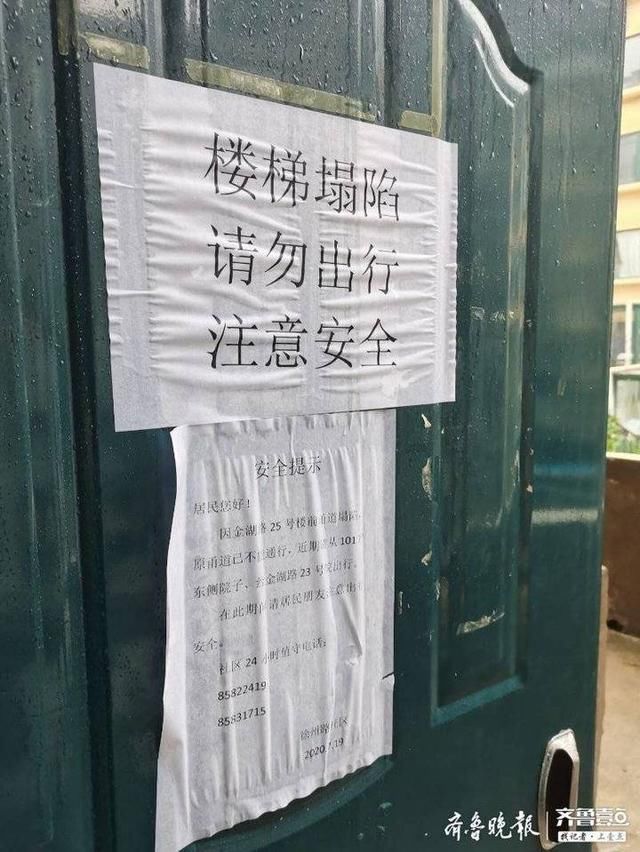 楼梯塌陷
请勿出行
注意安全
安全提示
居民您好！
因金湖路25号楼前甬道塌陷，
原甬道已不能通行，近期请从101
东侧院子、金湖路23号院出行。
在此期间请居民朋友注意出行
安全。
社区24小时值守电话：
85822419
85831715
徐州路社区
2020.7.19
齐鲁晚报
齐鲁壹点
找记者·上壹点